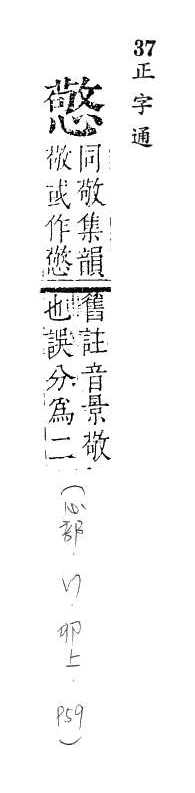 37 正字通
憼
同敬集韻
敬或作憼
舊註音景敬
也誤分爲二
(心部．卯上．P59)